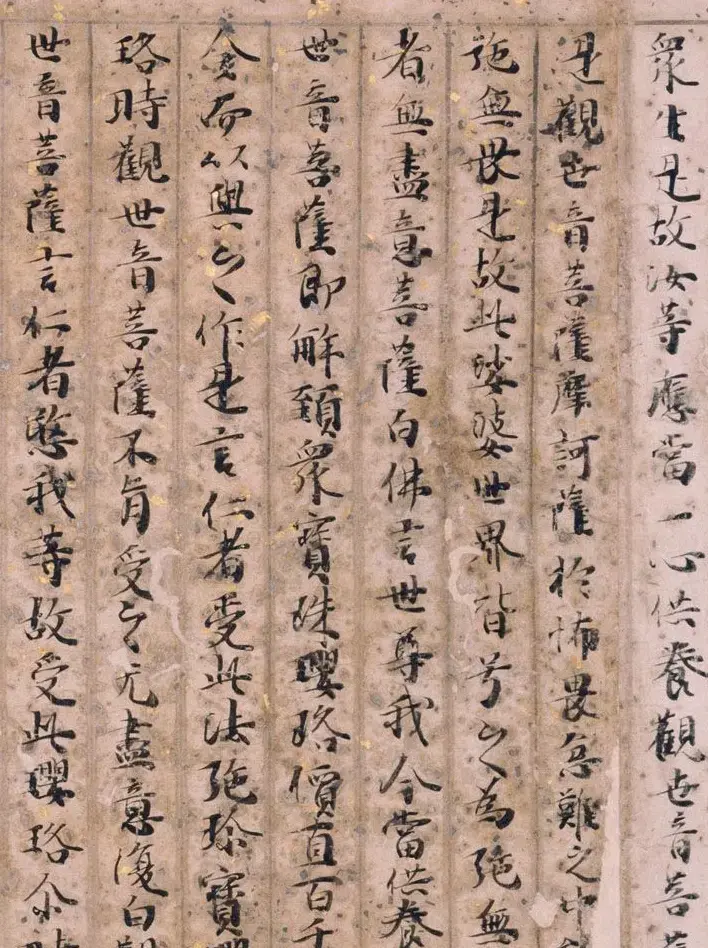 衆生是故汝等應當一心供養觀世音菩
是觀世音菩薩摩訶薩於怖畏急難之中
施無畏是故此娑婆世界皆号之為施無
者無盡意菩薩白佛言世尊我今當供養
世音菩薩即解頸衆寶珠瓔珞價直百千
金而以與之作是言仁者受此法施珎寶瓔
珞時觀世音菩薩不肯受之无盡意復白觀
世音菩薩言仁者愍我等故受此瓔珞尒時